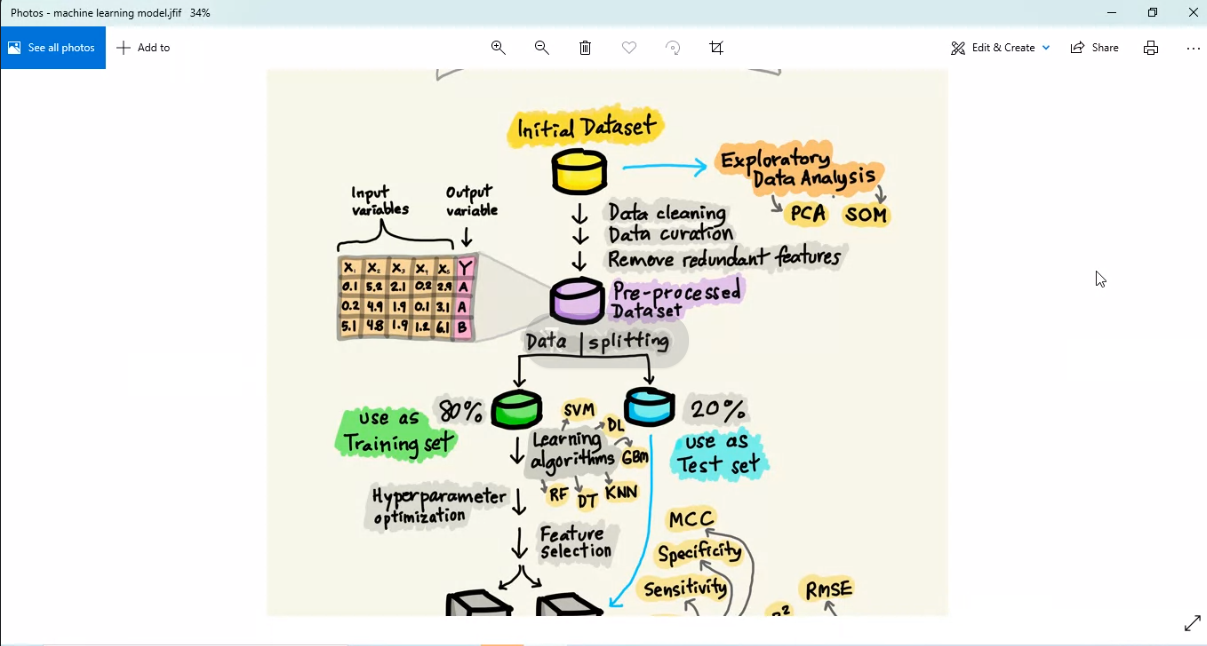 Photos - machine learning model.jfif 34%
See all photos
Add to
Edit & Create
Share
Initial Dataset
Exploratory
Data Analysis
PCA
SOM
Input
variables
Output
variable
Data cleaning
Data curation
Remove redundant features
X₁ X₂ X₃ X₄ X₅ Y
0.1 5.2 2.1 0.2 2.9 A
0.2 4.9 1.9 0.1 3.1 A
5.1 4.8 1.9 1.2 6.1 B
Pre-processed
Dataset
Data splitting
80%
20%
use as
Training set
use as
Test set
SVM
DL
Learning
algorithms
GBM
RF
DT
KNN
Hyperparameter
optimization
Feature
selection
MCC
Specificity
Sensitivity
RMSE